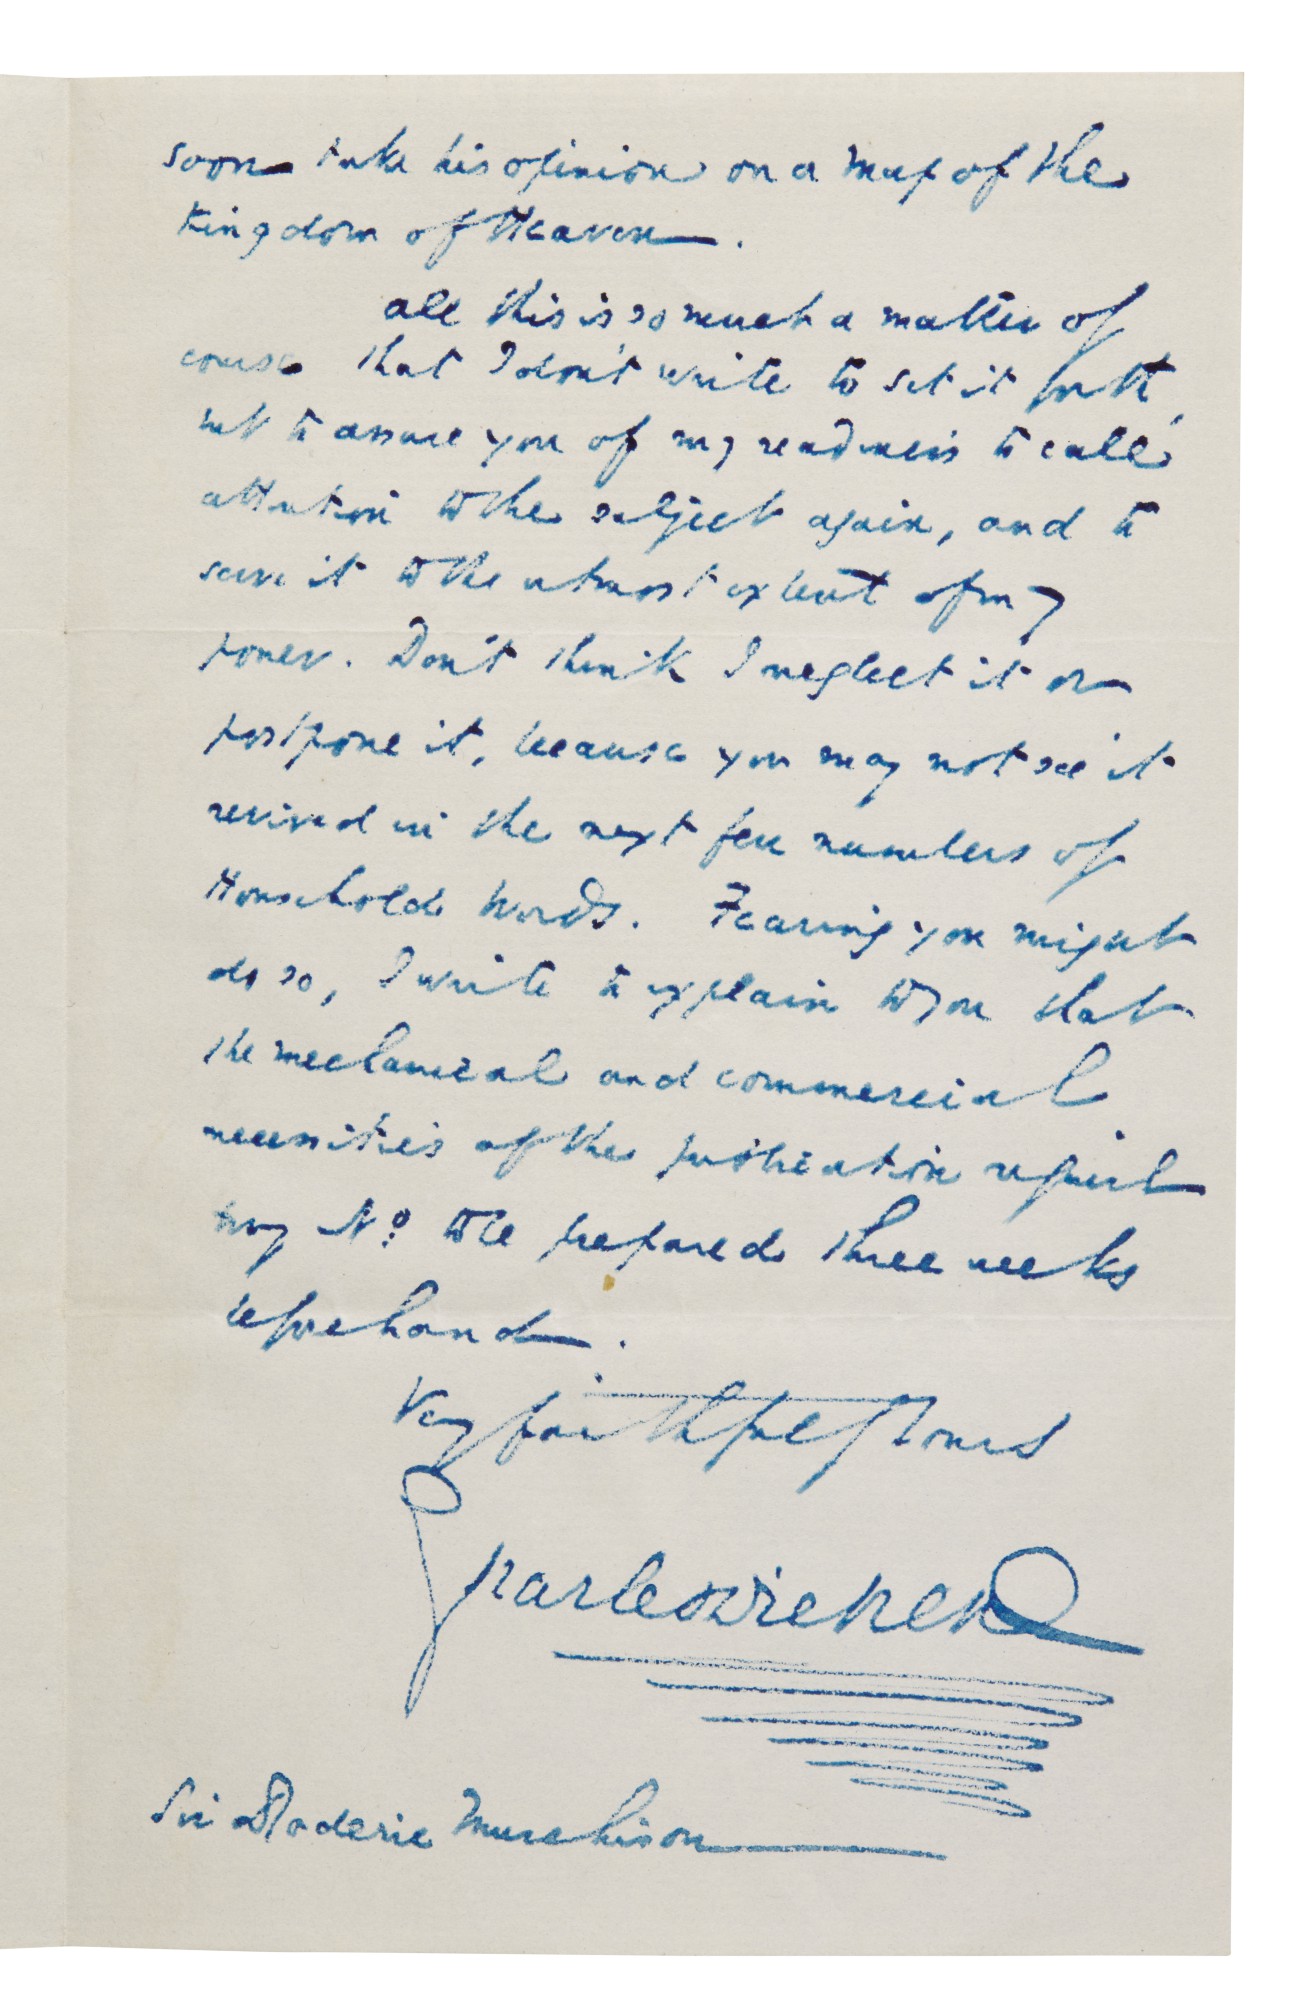 soon take his opinion on a Map of the
Kingdom of Heaven.
All this is so much a matter of
course that I don't write to set it forth,
but to assure you of my readiness to call
attention to the subject again, and to
serve it to the utmost extent of my
power. Don't think I neglect it or
postpone it, because you may not see it
revived in the next few numbers of
Household Words. Fearing you might
do so, I write to explain to you that
the mechanical and commercial
necessities of the publication require
my No. to be prepared three weeks
beforehand.
Very faithfully Yours
Charles Dickens
Sir Roderic Murchison